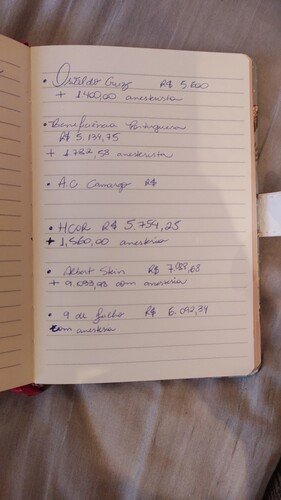 • Oswaldo Cruz R$ 5.600
+ 1400,00 anestesista
• Beneficência Portuguesa
R$ 5.134,75
+ 1722,58 anestesista
• A.C Camargo R$
• HCOR R$ 5.754,25
+ 1,560,00 anestesia
• Albert Stein R$ 7.088,68
+ 9.093,98 com anestesia
• 9 de Julho R$ 6.092,34
com anestesia